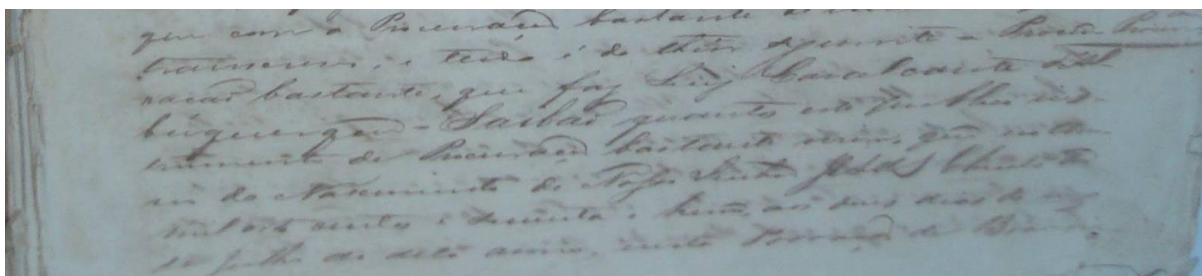 que com a Procuração bastante
transcrevi, e tudo é do theor seguinte =
ração bastante, que faz Luiz Cavalcante d'Al
buquerque = Saibão quantos este publico ins-
trumento de Procuração bastante virem, que no An-
no do Nascimento de Nosso Senhor Jesus Christo de
mil oito centos e secenta e hum, aos seis dias do mez
de Julho do dito anno, nesta Povoação de